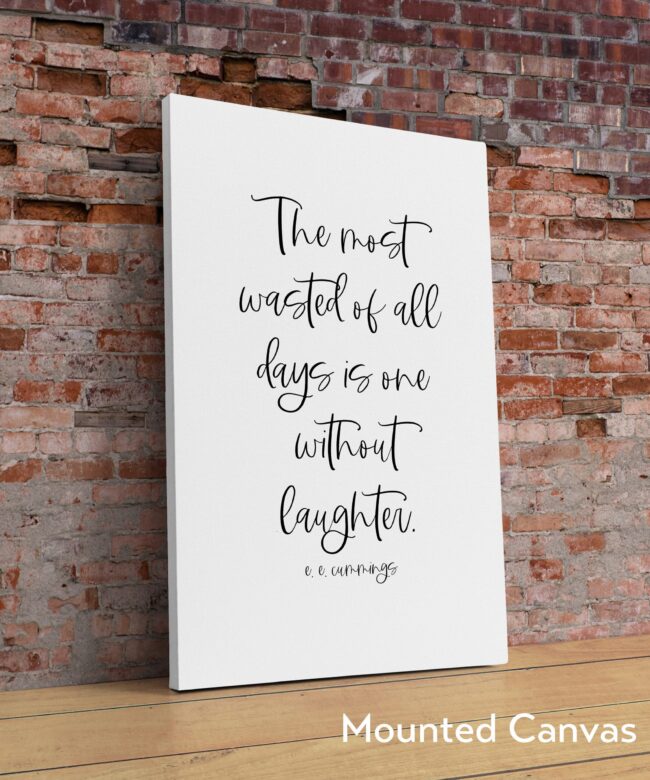 The most
wasted of all
days is one
without
laughter.
e. e. cummings
Mounted Canvas